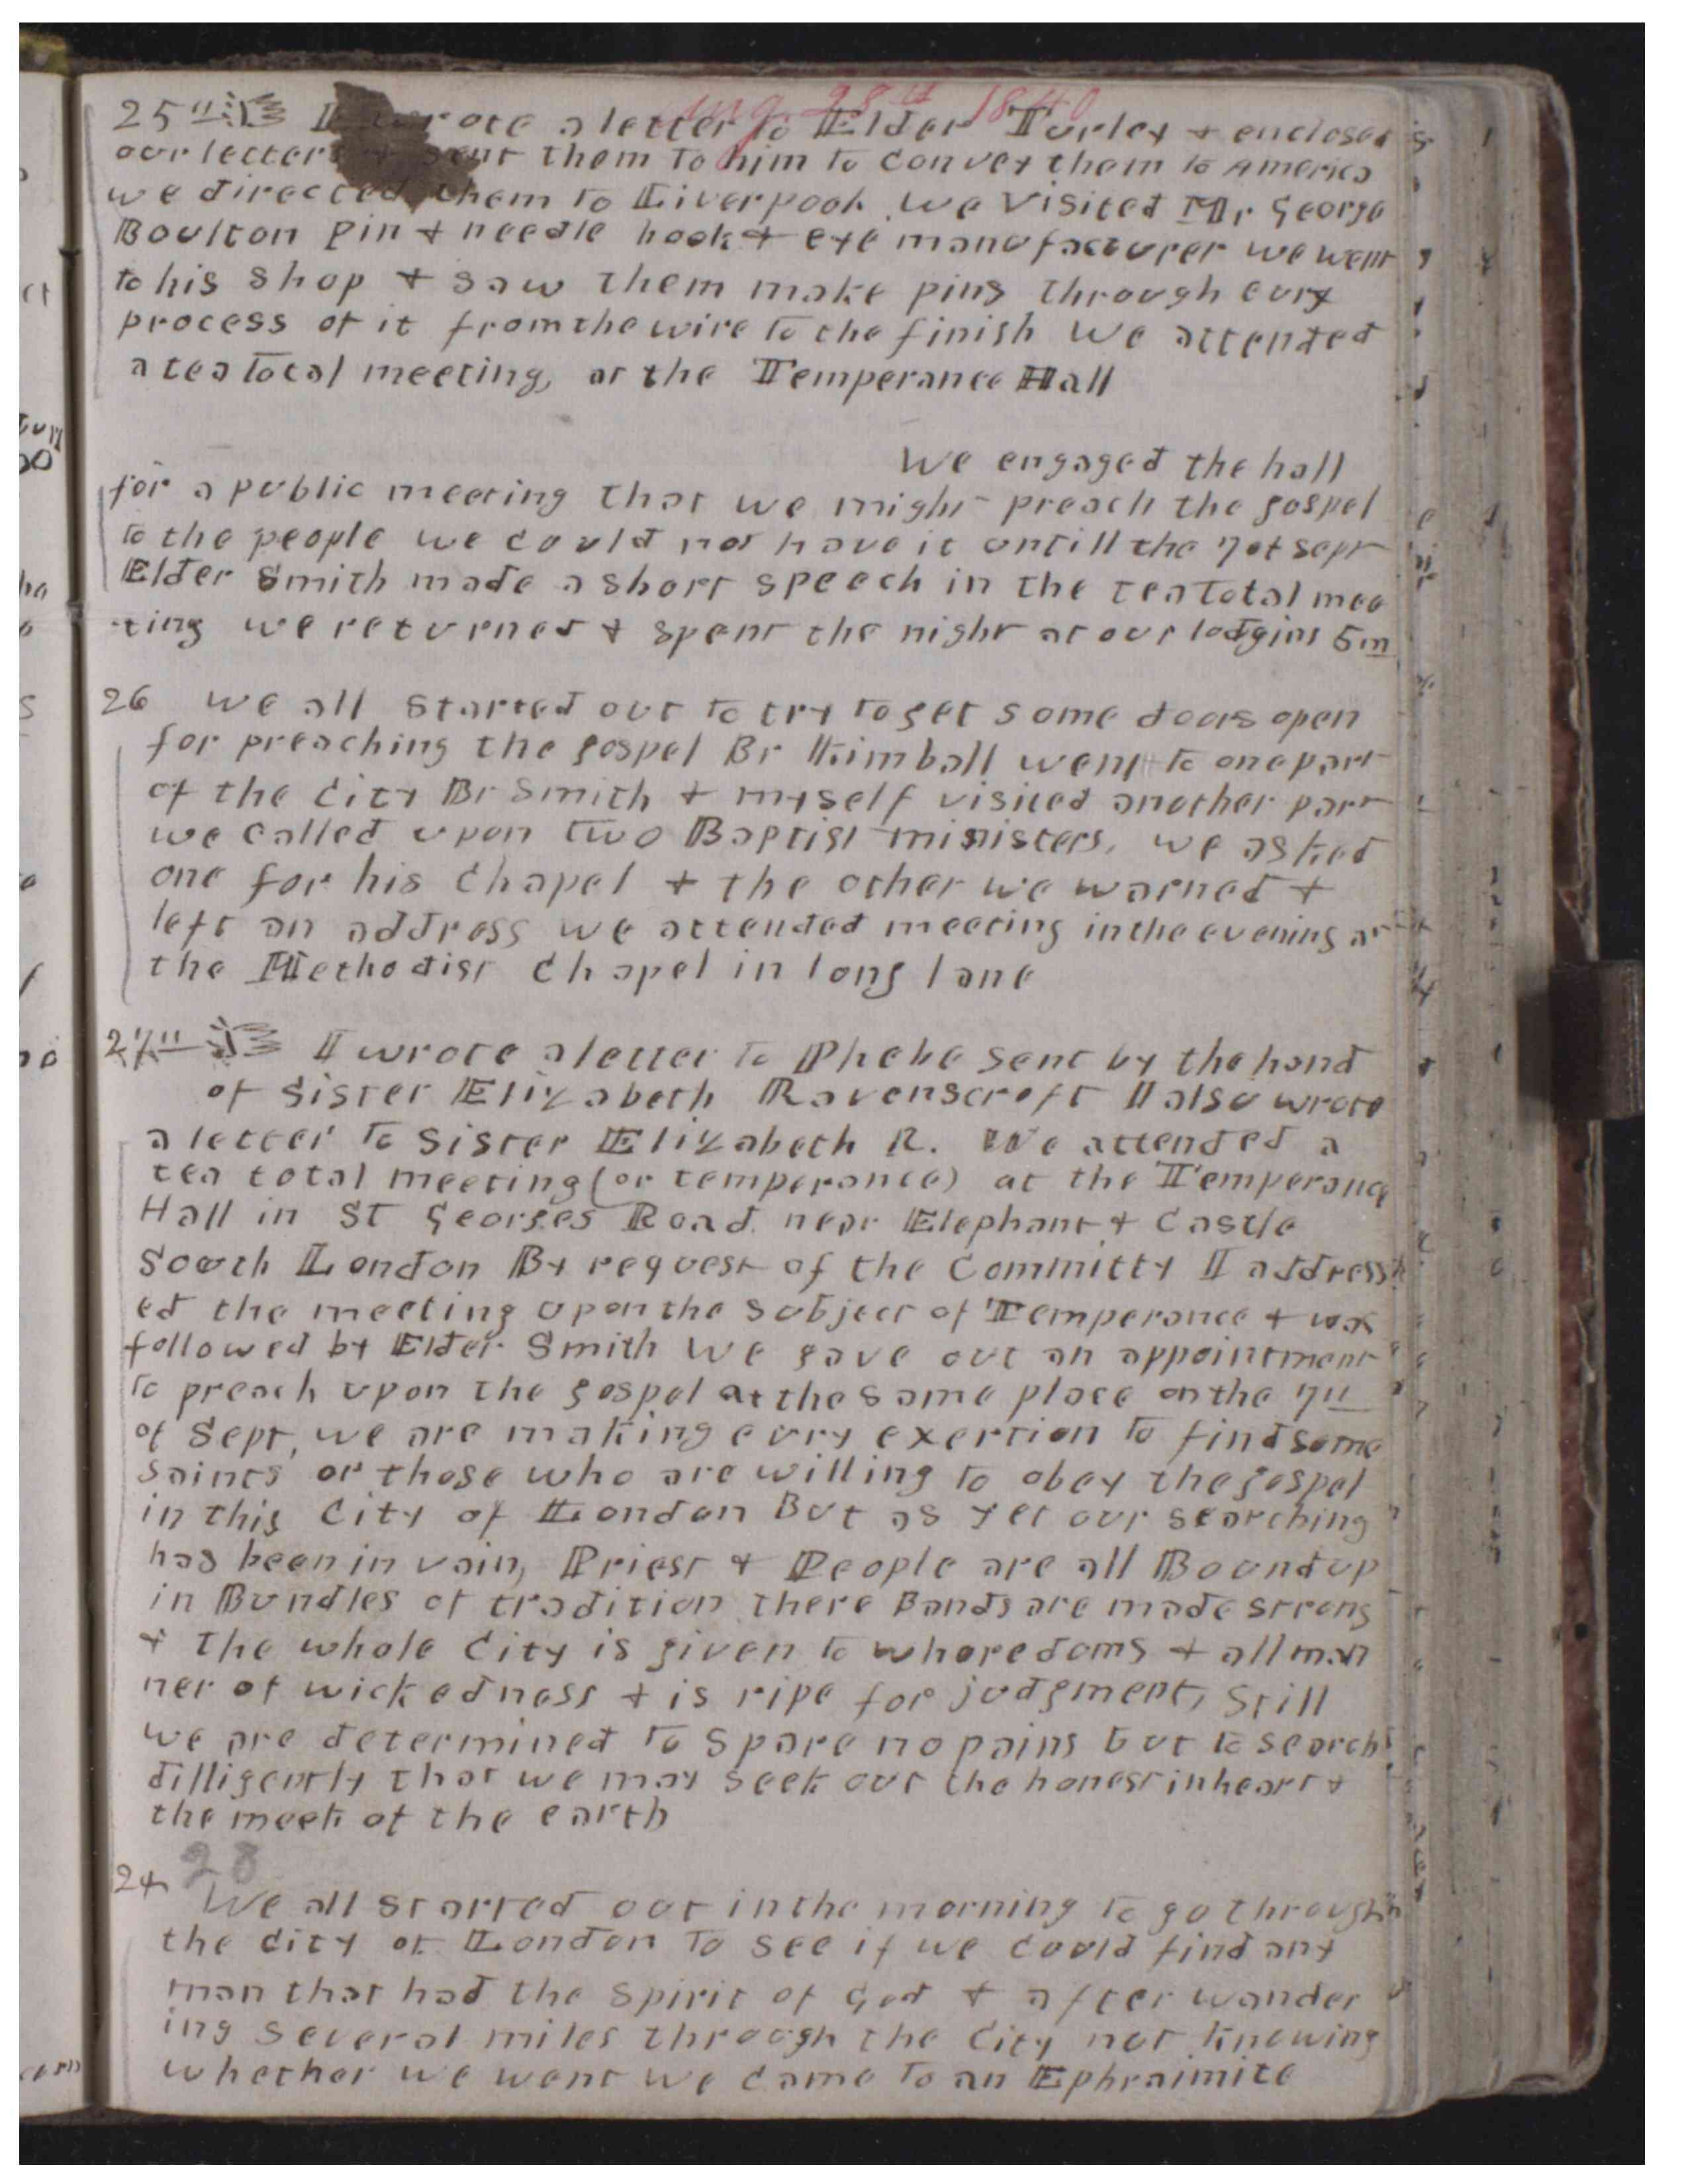 Aug. 28th 1840
25th I wrote a letter to Elder Turley & enclosed
our letters & sent them to him to convey them to America
we directed them to Liverpool. we visited Mr George
Boulton pin & needle hook & eye manufacturer we went
to his shop & saw them make pins through evry
process of it from the wire to the finish We attended
a tea total meeting, at the Temperance Hall
We engaged the hall
for a public meeting that we might preach the gospel
to the people we could not have it untill the 7ot sept
Elder Smith made a short speech in the teatotal mee
-ting we returned & spent the night at our lodgins 5 m
26 We all started out to try to get some doors open
for preaching the gospel Br Kimball went to one part
of the City Br Smith & myself visited another part
we called upon two Baptist ministers, we asked
one for his Chapel & the other we warned &
left an address we attended meeting in the evening at
the Methodist Chapel in long lane
27th I wrote a letter to Phebe sent by the hand
of Sister Elizabeth Ravenscroft I also wrote
a letter to Sister Elizabeth R. We attended a
tea total meeting (or temperance) at the Temperance
Hall in St Georges Road. near Elephant & Castle
South London By request of the Committy I address
ed the meeting upon the subject of Temperance & was
followed by Elder Smith We gave out an appointment
to preach upon the gospel at the same place on the 7th
of Sept, we are making evry exertion to find some
Saints or those who are willing to obey the gospel
in this City of London But as yet our searching
has been in vain, Priest & People are all Bound up
in Bundles of tradition there Bands are made strong
& the whole City is given to whoredoms & all man
ner of wickedness & is ripe for judgment, Still
we are determined to spare no pains but to search
dilligently that we may seek out the honest in heart &
the meek of the earth
28
24
We all started out in the morning to go through
the city of London to see if we could find any
man that had the spirit of God & after wander
ing several miles through the City not knowing
whether we went we came to an Ephraimite